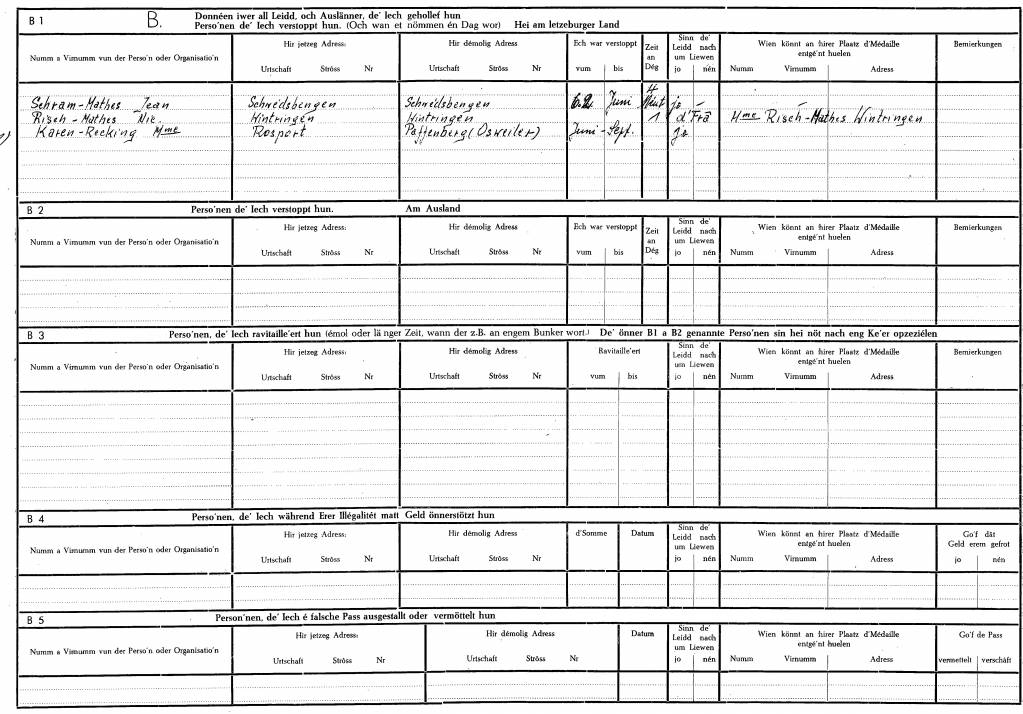 B 1 B. Donnéen iwer all Leidd, och Auslänner, de' Iech gehollef hun
Perso'nen de' Iech verstoppt hun. (Och wan et nömmen én Dag wor) Hei am letzeburger Land
Numm a Virnumm vun der Perso'n oder Organisatio'n
Hir jetzeg Adress:
Urtschaft Ströss Nr
Hir démolig Adress
Urtschaft Ströss Nr
Ech war verstoppt
vum bis
Zeit
an
Dég
Sinn de'
Leidd nach
um Liewen
jo nén
Wien könnt an hirer Plaatz d'Médaille
entgé'nt huelen
Numm Virnumm Adress
Bemierkungen
Schram-Mathes Jean Schwédsbengen Schwédsbengen Juni 4 jo –
Risch-Mathes Nic. Wintringen Wintringen 1 d'Frä Mme Risch-Mathes Wintringen
Karen-Recking Mme Rosport Paffenberg (Osweiler) Juni - Sept. jo
B 2 Perso'nen de' Iech verstoppt hun. Am Ausland
Numm a Virnumm vun der Perso'n oder Organisatio'n
Hir jetzeg Adress:
Urtschaft Ströss Nr
Hir démolig Adress
Urtschaft Ströss Nr
Ech war verstoppt
vum bis
Zeit
an
Dég
Sinn de'
Leidd nach
um Liewen
jo nén
Wien könnt an hirer Plaatz d'Médaille
entgé'nt huelen
Numm Virnumm Adress
Bemierkungen
B 3 Perso'nen, de' Iech ravitaille'ert hun (émol oder länger Zeit, wann der z.B. an engem Bunker wort.) De' önner B1 a B2 genannte Perso'nen sin hei nöt nach eng Ke'er opzeziélen
Numm a Virnumm vun der Perso'n oder Organisatio'n
Hir jetzeg Adress:
Urtschaft Ströss Nr
Hir démolig Adress
Urtschaft Ströss Nr
Ravitaille'ert
vum bis
Sinn de'
Leidd nach
um Liewen
jo nén
Wien könnt an hirer Plaatz d'Médaille
entgé'nt huelen
Numm Virnumm Adress
Bemierkungen
B 4 Perso'nen, de' Iech während Erer Illégalitét matt Geld önnerstötzt hun
Numm a Virnumm vun der Perso'n oder Organisatio'n
Hir jetzeg Adress:
Urtschaft Ströss Nr
Hir démolig Adress
Urtschaft Ströss Nr
d'Somme
Datum
Sinn de'
Leidd nach
um Liewen
jo nén
Wien könnt an hirer Plaatz d'Médaille
entgé'nt huelen
Numm Virnumm Adress
Go'f dât
Geld erem gefrot
jo nén
B 5 Person'nen, de' Iech é falsche Pass ausgestallt oder vermöttelt hun
Numm a Virnumm vun der Perso'n oder Organisatio'n
Hir jetzeg Adress:
Urtschaft Ströss Nr
Hir démolig Adress
Urtschaft Ströss Nr
Datum
Sinn de'
Leidd nach
um Liewen
jo nén
Wien könnt an hirer Plaatz d'Médaille
entgé'nt huelen
Numm Virnumm Adress
Go'f de Pass
vermettelt verschäft